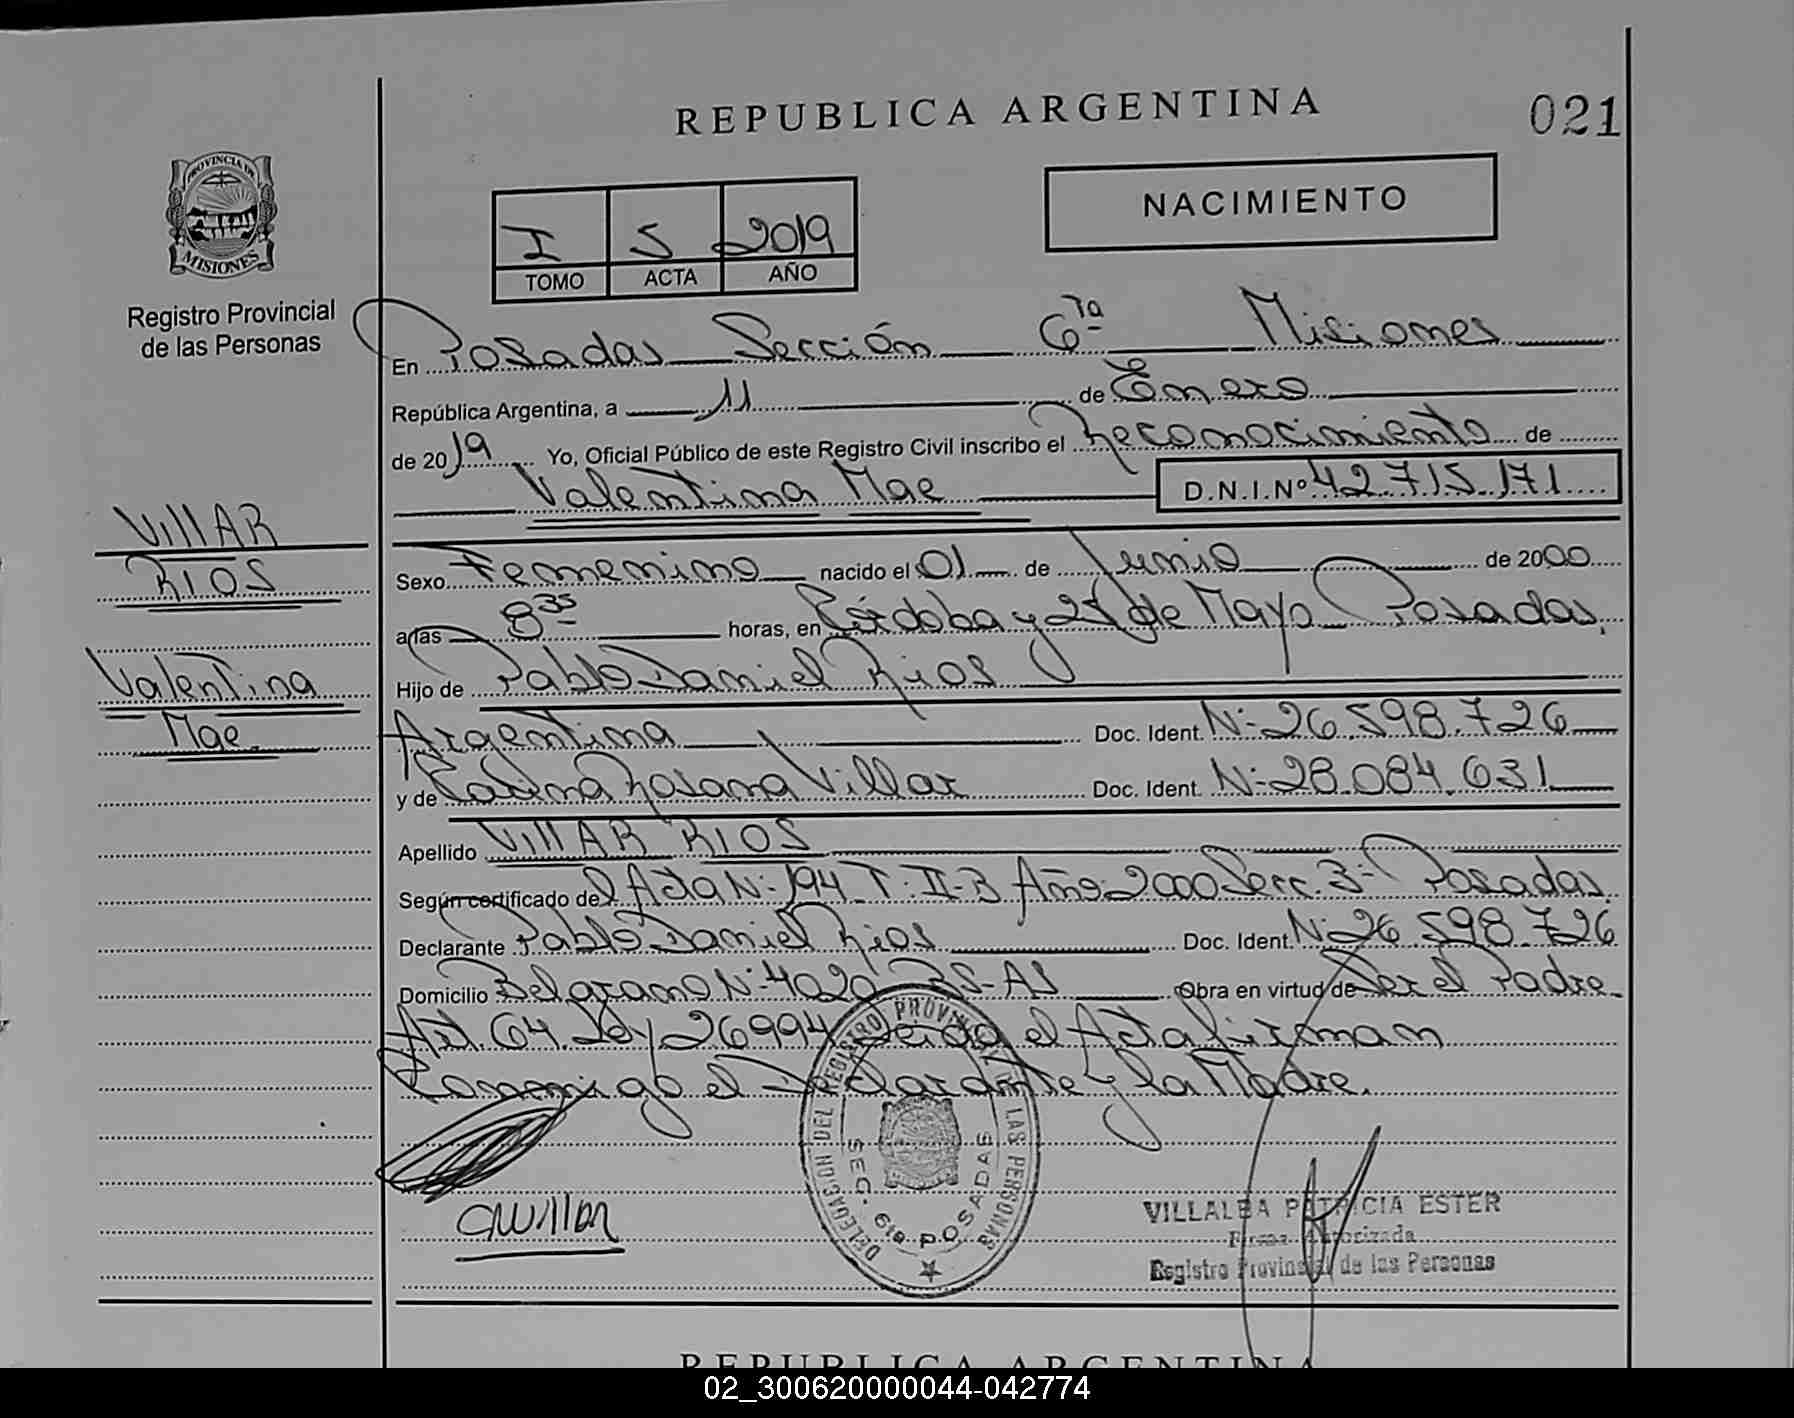 REPUBLICA ARGENTINA
021
PROVINCIA DE
MISIONES
Registro Provincial
de las Personas
NACIMIENTO
I 5 2019
TOMO ACTA AÑO
En Posadas Sección 6ta Misiones
República Argentina, a 11 de Enero
de 2019 Yo, Oficial Público de este Registro Civil inscribo el Reconocimiento de
Valentina Mae D.N.I.Nº 42.715.171
VillAR
RIOS
Valentina
Mae.
Sexo Femenino nacido el 01 de Junio de 2000
a las 8 35 horas, en Córdoba y 25 de Mayo Posadas,
Hijo de Pablo Daniel Rios
Argentina Doc. Ident. Nº 26.598.726
y de Rosana Villar Doc. Ident. Nº 28.084.631
Apellido VillAR RIOS
Según certificado del Acta Nº 194 T: II-B Año 2000 Secc. 3ª Posadas
Declarante Pablo Daniel Rios Doc. Ident. Nº 26.598.726
Domicilio Belgrano Nº 4020 BS-AS Obra en virtud de Ser el Padre
Art. 64 Ley 26994 Leida el Acta firman
Conmigo el Declarante y la Madre.
DELEGACION DEL REGISTRO PROVINCIAL DE LAS PERSONAS
SEC. 6ta POSADAS
VILLALBA PATRICIA ESTER
Firma Autorizada
Registro Provincial de las Personas
REPUBLICA ARGENTINA
02_300620000044-042774